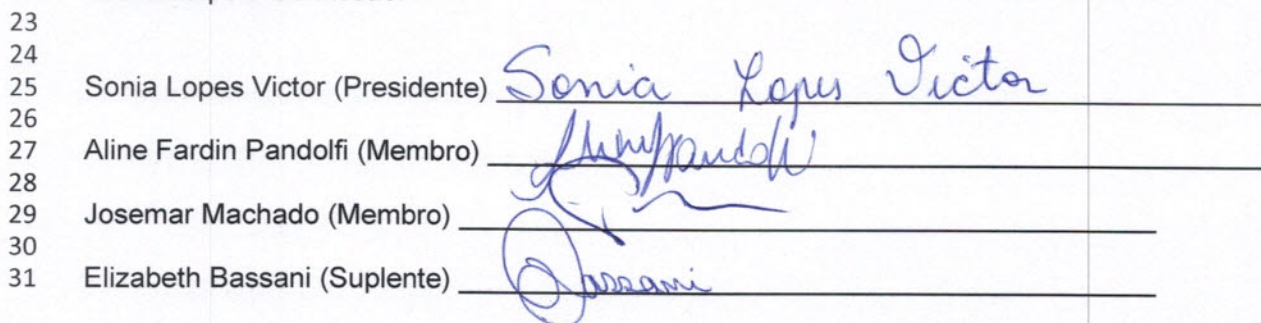 23
24
25 Sonia Lopes Victor (Presidente) Sonia Lopes Victor
26
27 Aline Fardin Pandolfi (Membro)
28
29 Josemar Machado (Membro)
30
31 Elizabeth Bassani (Suplente) Bassani